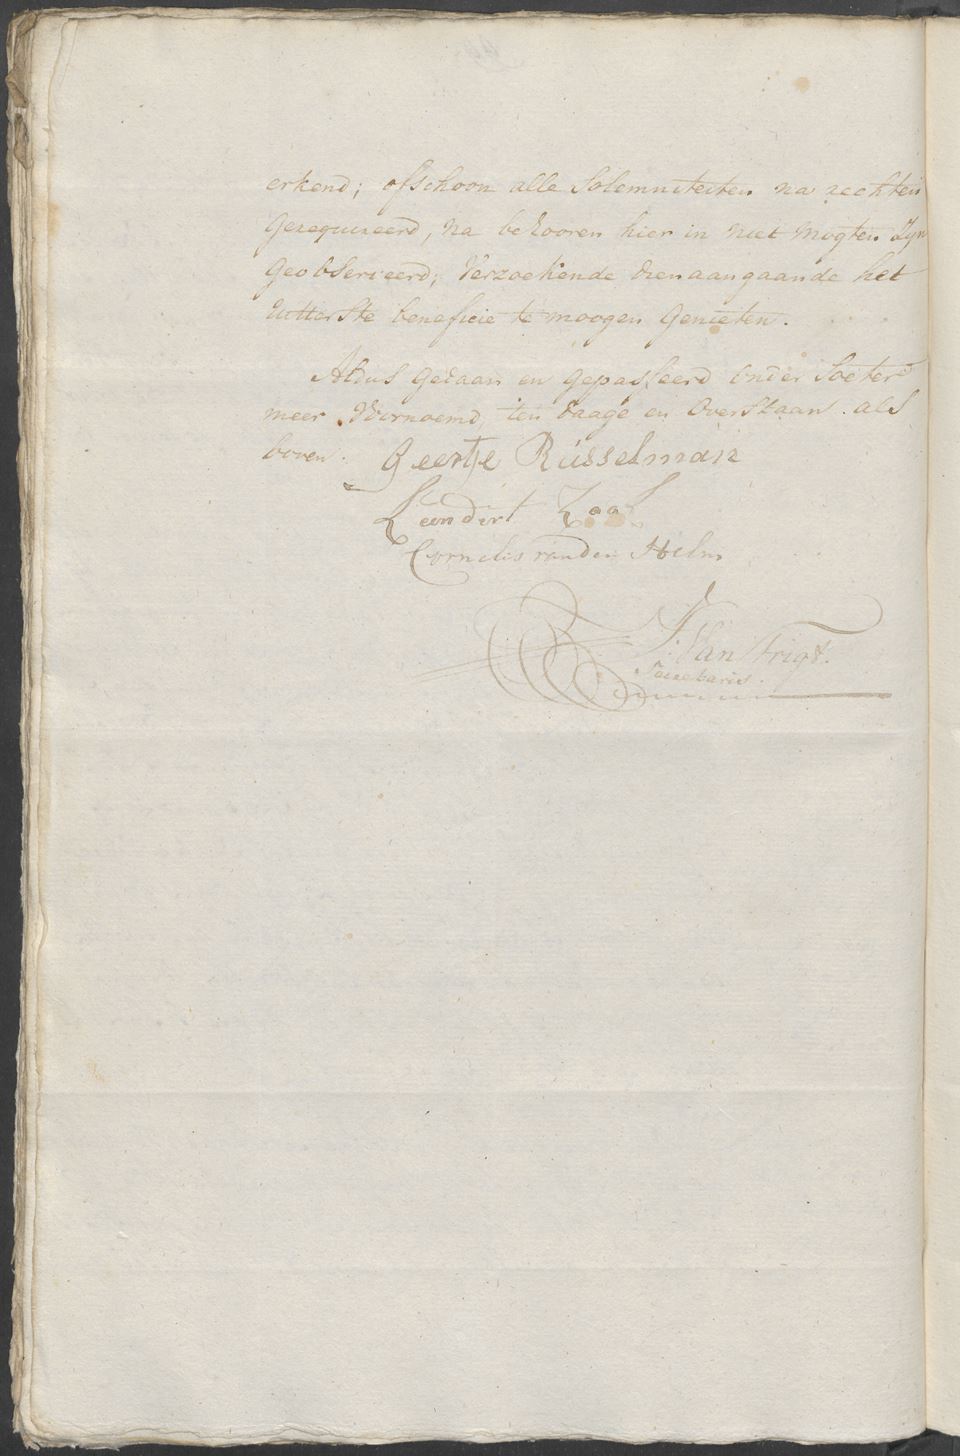 erkend; ofschoon alle Solemniteiten na rechten
Gerequireerd, na behooren hier in niet mogten Zyn
Geobserveerd; Verzoekende dien aangaande het
Uitterste beneficie te moogen Genieten.
Aldus Gedaan en Gepasseerd onder Soeter
meer Voornoemd, ten daage en Overstaan als
boven.
Geertje Russelman
Leendert
Cornelis van den Helm
J: Van Strigt.
Secretaris.